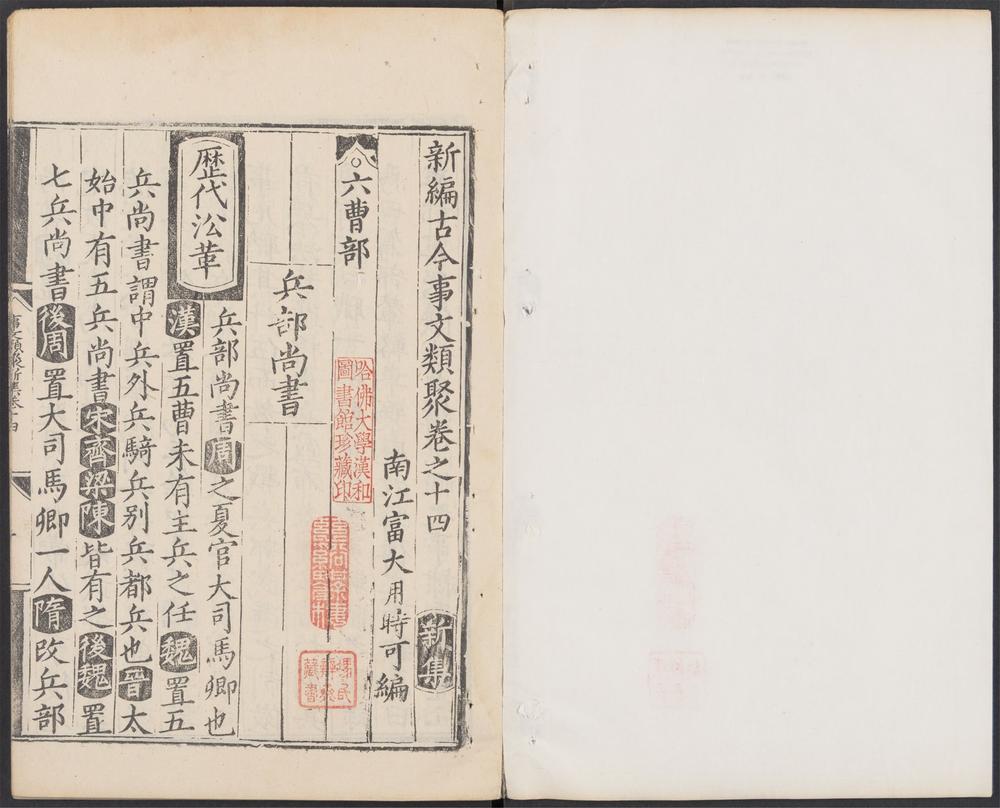 新編古今事文類聚卷之十四 新集
南江富大用時可編
六曹部
兵部尚書
歷代㳂革
兵部尚書周之夏官大司馬卿也
漢置五曹未有主兵之任魏置五
兵尚書謂中兵外兵騎兵别兵都兵也晉太
始中有五兵尚書宋齊梁陳皆有之後魏置
七兵尚書後周置大司馬卿一人隋改兵部
哈佛大學漢和
圖書館珍藏印